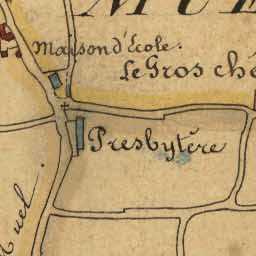 Maison d'École.
Le Gros ch
Presbytère
Muel.